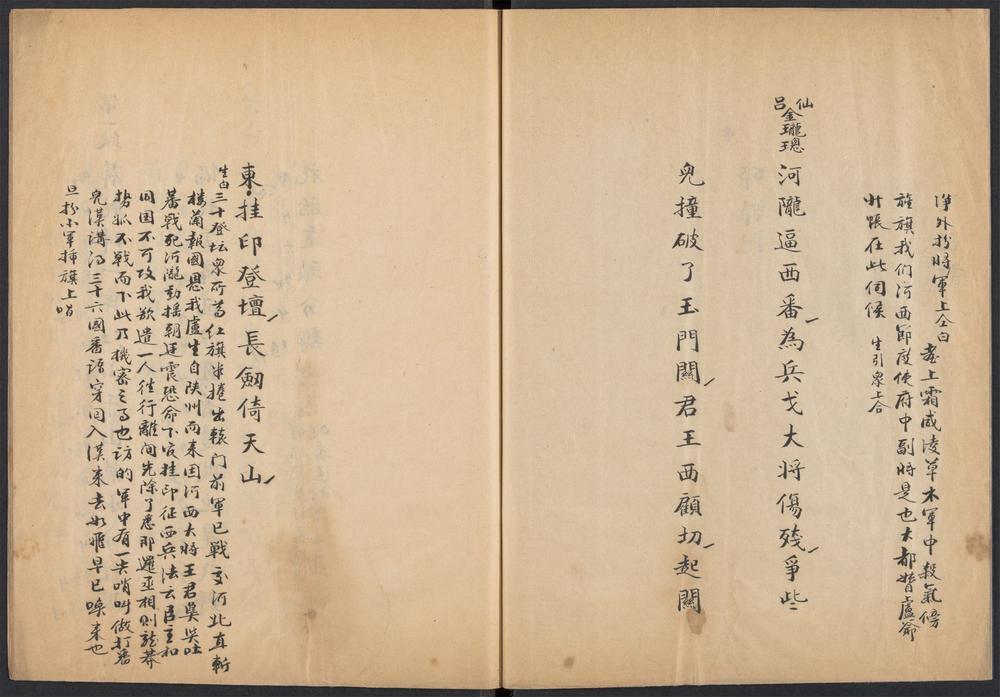 净外扮將軍上仝白 臺上霜威凌草木軍中殺氣傍
旌旗我們河西節度使府中副將是也大都督盧爺
升帳在此伺候 生引衆上合
仙呂 金瓏璁 河隴逼西番為兵戈大將傷殘爭些
兒撞破了玉門關君王西顧切起關
東挂印登壇長劔倚天山
生白三十登坛衆所尊红旗半捲出轅门前軍已戰交河北直斬
楼蘭報國恩我盧生自陕州而来因河西大將王君㚟吐
蕃戰死河隴動摇朝廷震恐命下官挂印征西兵法云臣主和
同國不可攻我欲遣一人往行離间先除了悉那邏丞相則龍莽
勢孤不戰而下此乃機密之事也访的軍中有一尖哨叫做打番
兒漢講得三十六國番语穿回入漢来去如飛早已喚来也
旦扮小軍插旗上唱